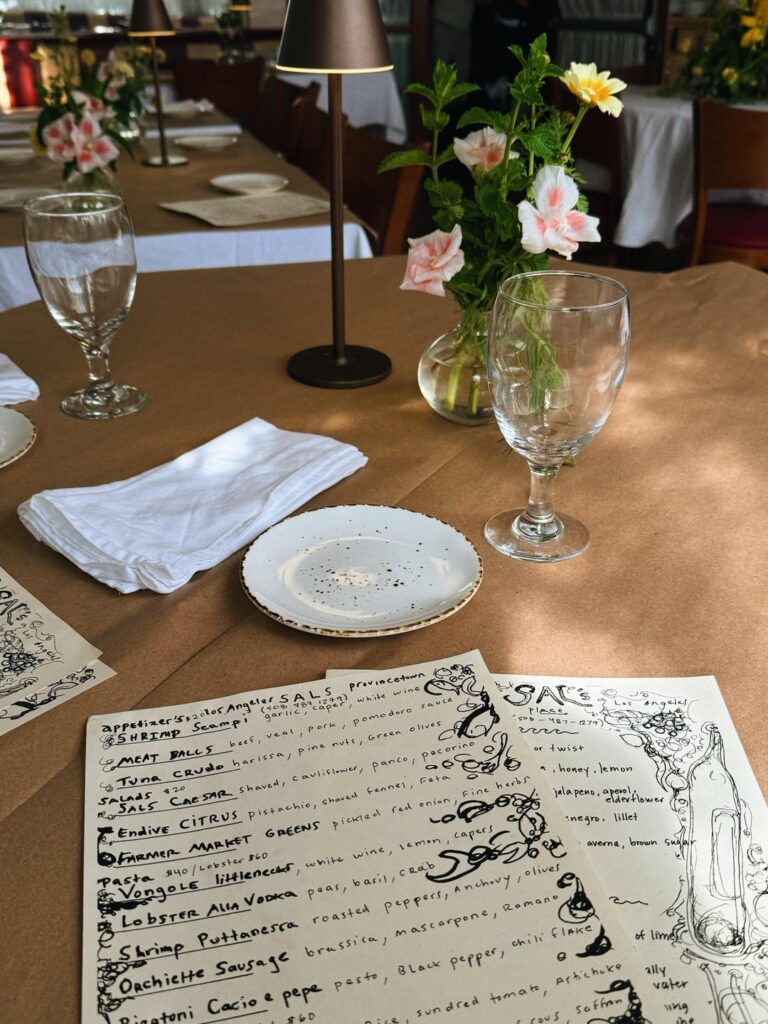 Los Angeles SALS Provincetown
appetizer's $20 (508 487 1279)
SHRIMP Scampi garlic, caper, white wine
MEAT BALLS beef, veal, pork, pomodoro sauce
Tuna CRUDO harissa, pine nuts, Green olives
SALADS $20
SALS CAESAR shaved, cauliflower, panco, pocorino
ENDIVE CITRUS pistachio, shaved fennel, Feta
FARMER MARKET GREENS pickled red onion, Fine herbs
Pasta $40/Lobster $60
Vongole littlenecks, white wine, lemon, capers
LOBSTER Alla VODKA peas, basil, CRAB
Shrimp Puttanesca roasted peppers, Anchovy, olives
Orchiette Sausage brassica, mascarpone, Romano
Rigatoni Cacio e pepe pesto, Black pepper, chili flake
$60
rice, sundred tomato, Artichoke
saffron
SAL'S
PLACE
Los Angeles
508-487-1279
or twist
, honey, lemon
jalapeno, aperol,
elderflower
negro, lillet
averne, brown sugar
of lime
ally
water
ing
the
SAL'S
Los Angeles